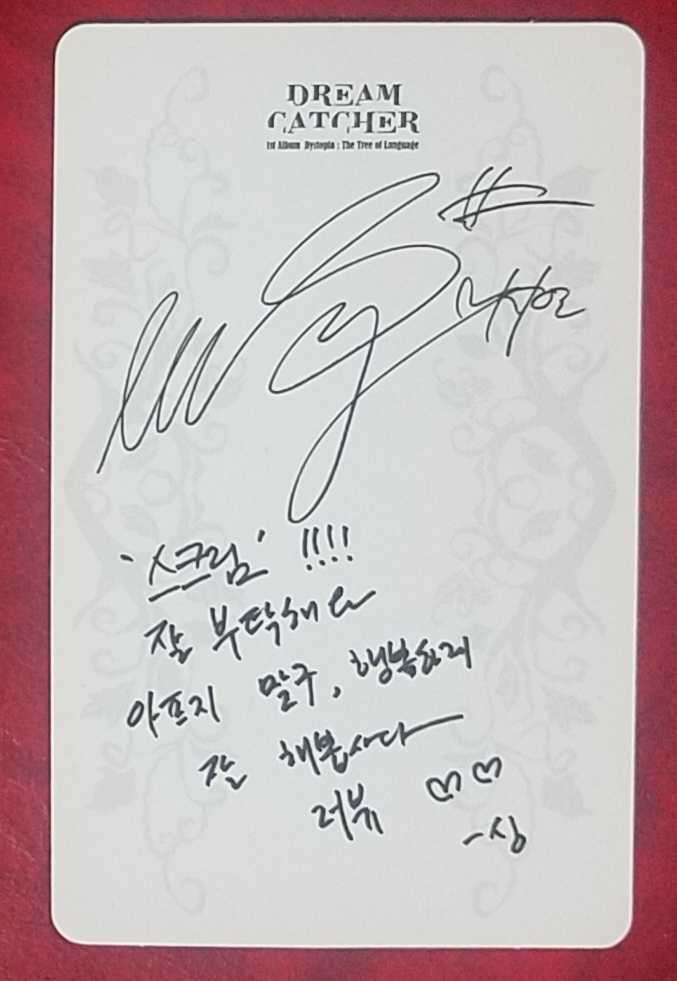 DREAM
CATCHER
1st Album Dystopia : The Tree of Language
'스크림' !!!!
잘 부탁해요
아프지 말구, 행복하게
잘 해봅시다
러뷰 ♡♡
-싱